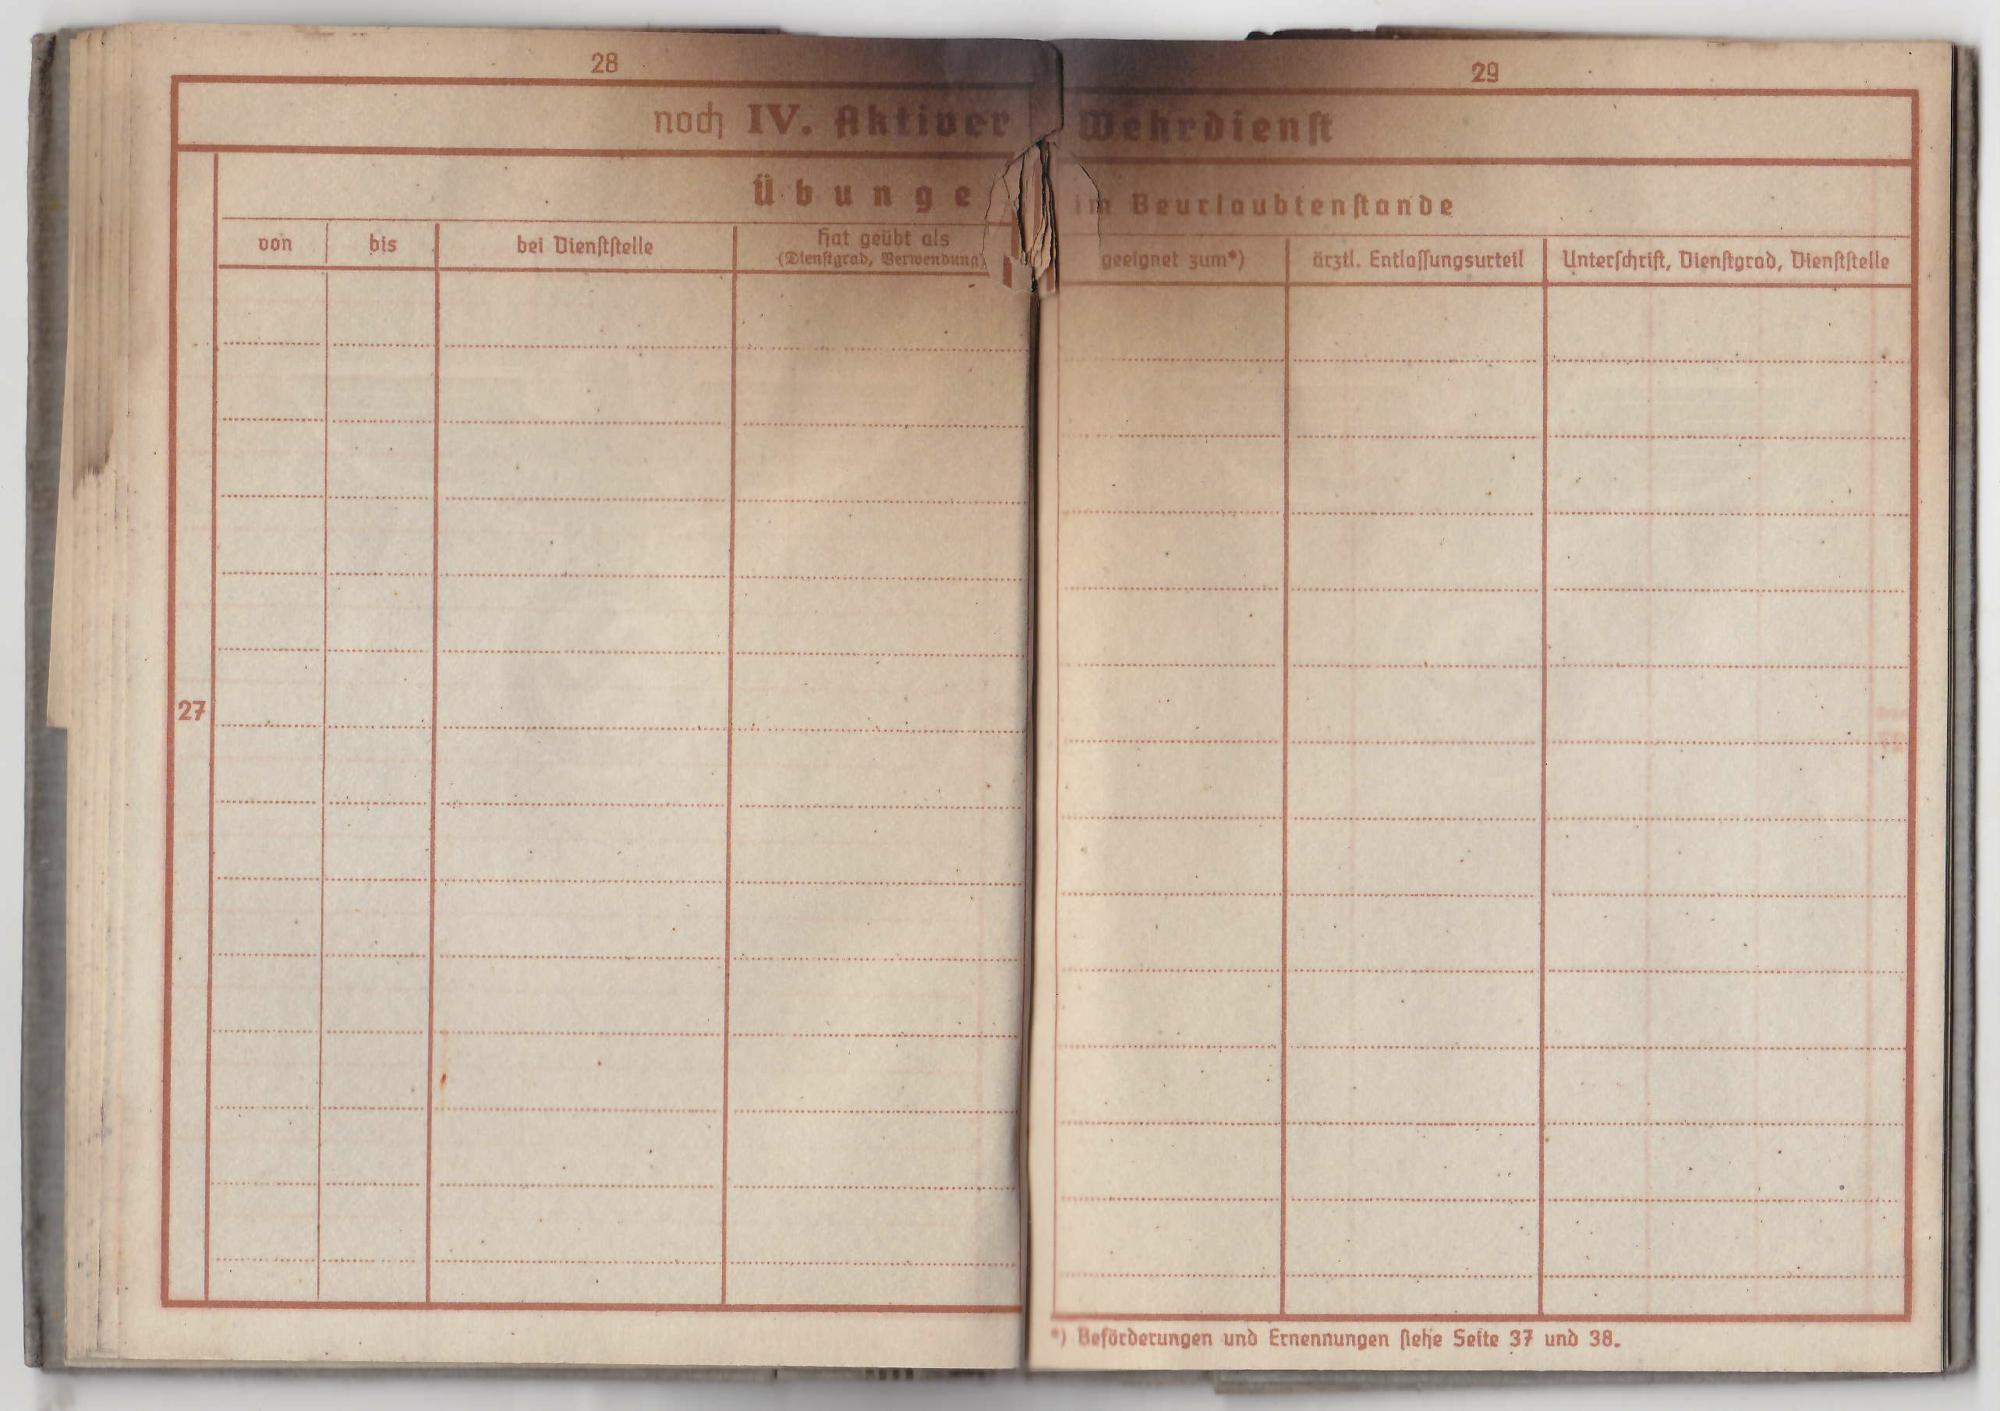 28
29
noch IV. Aktiver Wehrdienst
Übunge im Beurlaubtenstande
von
bis
bei Dienststelle
Hat geübt als
(Dienstgrad, Verwendung)
geeignet zum*)
ärztl. Entlassungsurteil
Unterschrift, Dienstgrad, Dienststelle
27
*) Beförderungen und Ernennungen siehe Seite 37 und 38.